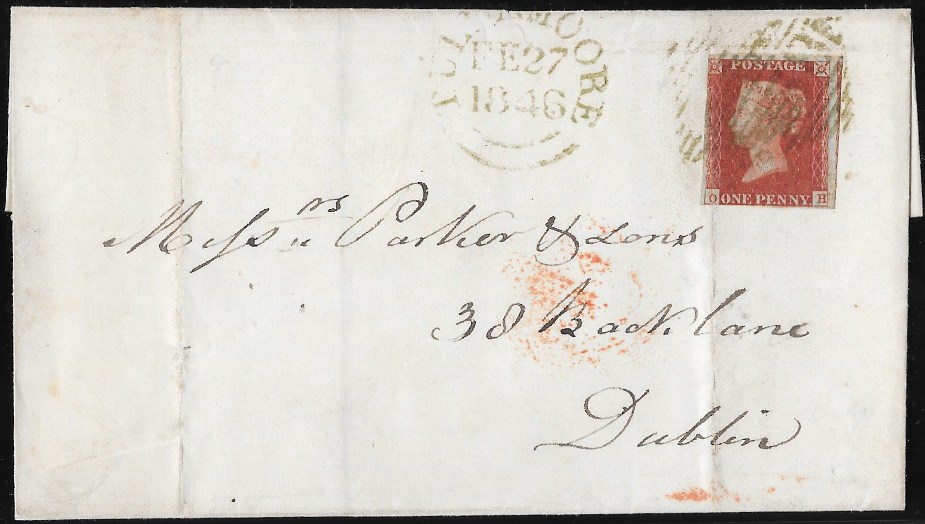 FE 27
1846
POSTAGE
O ONE PENNY H
Messrs Parker & Sons
38 Back lane
Dublin